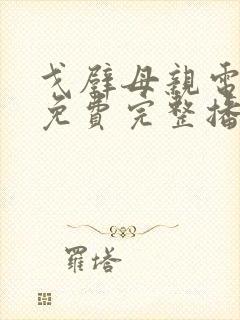 戈壁母親電
免費完整播
羅塔